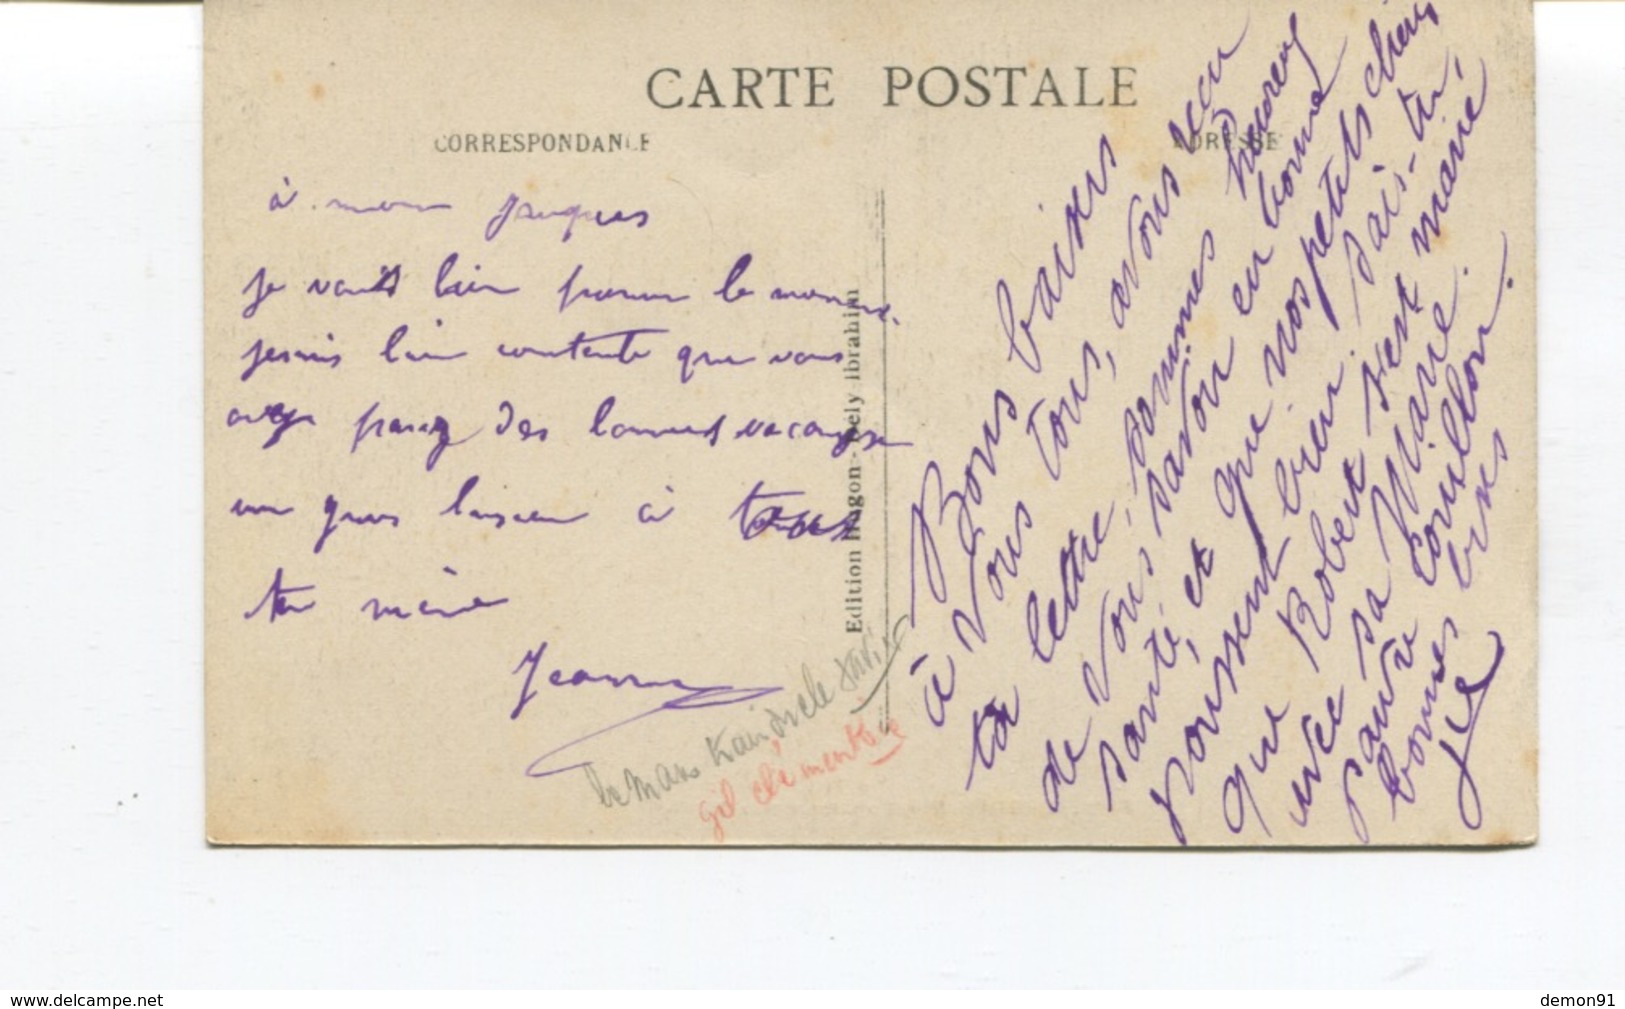 CARTE POSTALE
CORRESPONDANCE
ADRESSE
à mon Jacques
je vais bien pour le moment.
je suis bien contente que vous
avez passez des bonnes vacances
un gros baiser à tous
ta mère
Jeanne
Edition Hugon - Seely Ibrahim
Bons baisers
à Vous tous, avons reçu
ta lettre, sommes heureux
de Vous savoir en bonne
santé, et que nos petits chiens
poussent bien. Sais-tu,
que Robert s'est marié,
avec sa Marie.
Pauvre couillon.
bonnes bises
le mans
gil. clémentine
www.delcampe.net
demon91